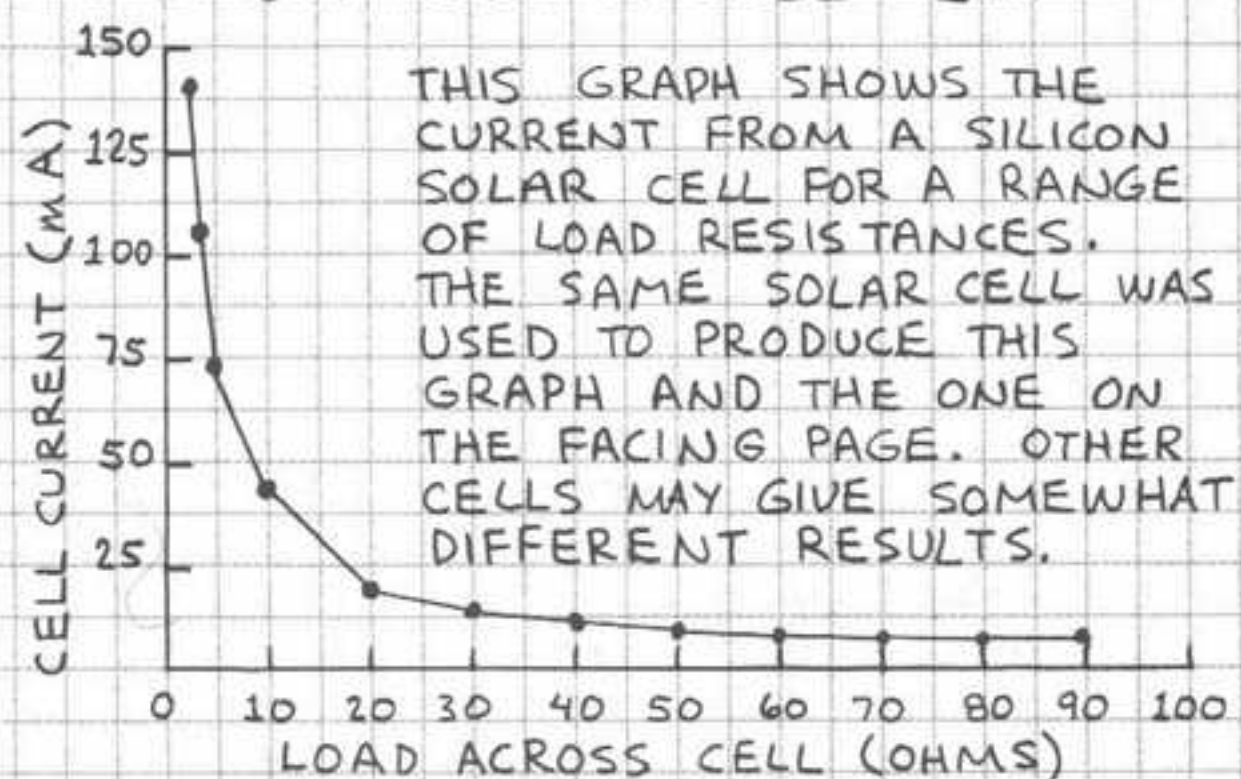 150
125
100
75
50
25
CELL CURRENT (mA)
THIS GRAPH SHOWS THE
CURRENT FROM A SILICON
SOLAR CELL FOR A RANGE
OF LOAD RESISTANCES.
THE SAME SOLAR CELL WAS
USED TO PRODUCE THIS
GRAPH AND THE ONE ON
THE FACING PAGE. OTHER
CELLS MAY GIVE SOMEWHAT
DIFFERENT RESULTS.
0 10 20 30 40 50 60 70 80 90 100
LOAD ACROSS CELL (OHMS)